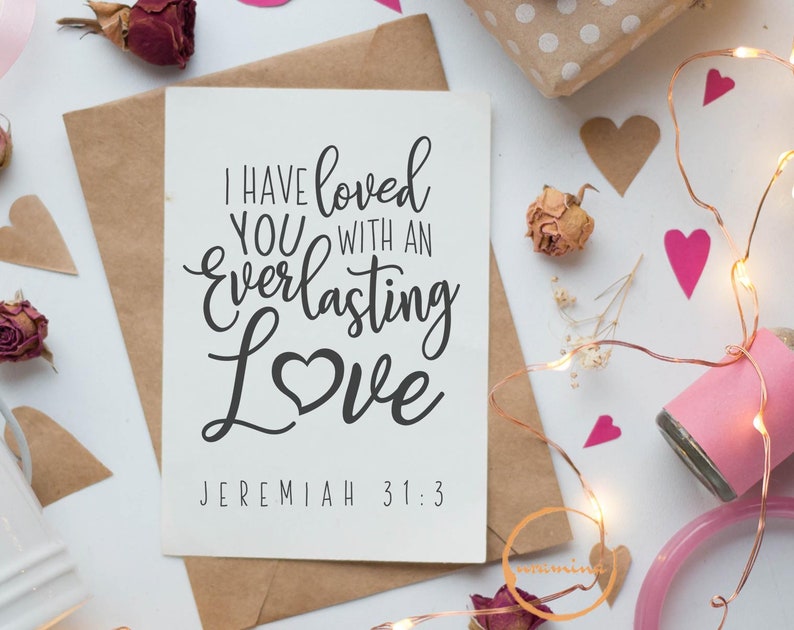 I HAVE loved
YOU WITH AN
Everlasting
Love
JEREMIAH 31:3